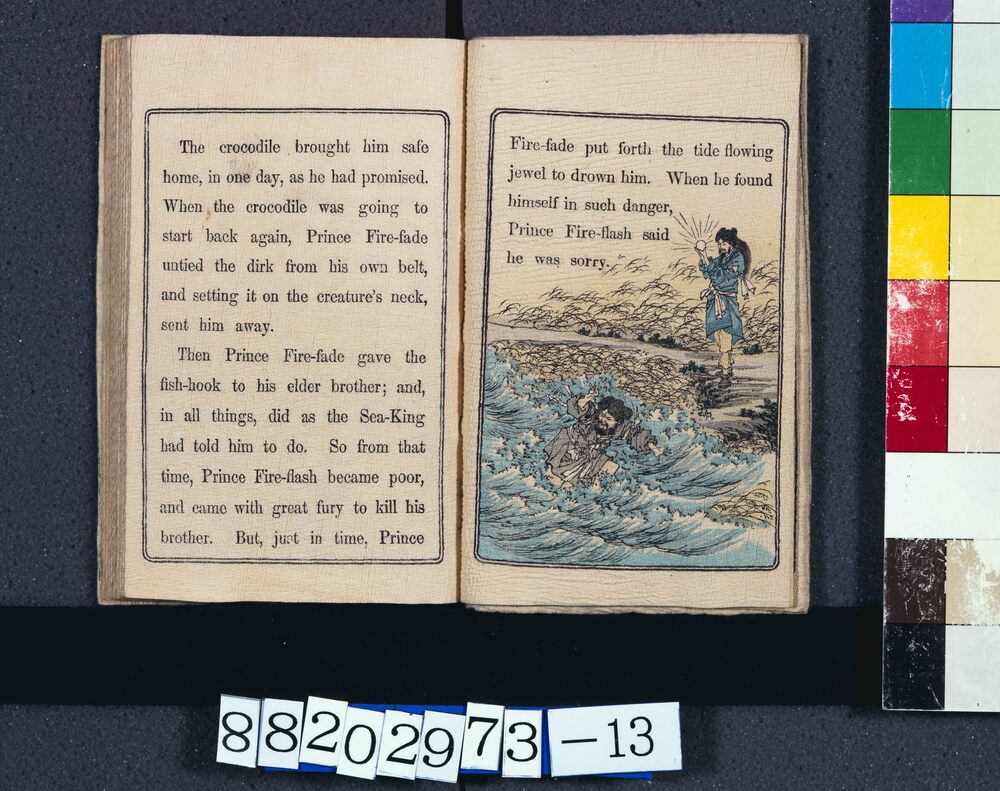 The crocodile brought him safe
home, in one day, as he had promised.
When the crocodile was going to
start back again, Prince Fire-fade
untied the dirk from his own belt,
and setting it on the creature's neck,
sent him away.
Then Prince Fire-fade gave the
fish-hook to his elder brother; and,
in all things, did as the Sea-King
had told him to do. So from that
time, Prince Fire-flash became poor,
and came with great fury to kill his
brother. But, just in time, Prince
Fire-fade put forth the tide flowing
jewel to drown him. When he found
himself in such danger,
Prince Fire-flash said
he was sorry.
88202973-13